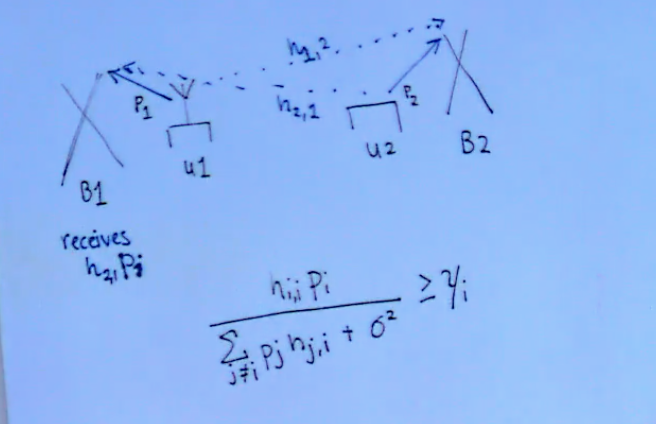 h1,2
P1
h2,1
P2
u1
u2
B1
B2
receives
h2,1 Pj
hi,i Pi
≥ γi
∑ j≠i Pj hj,i + σ²